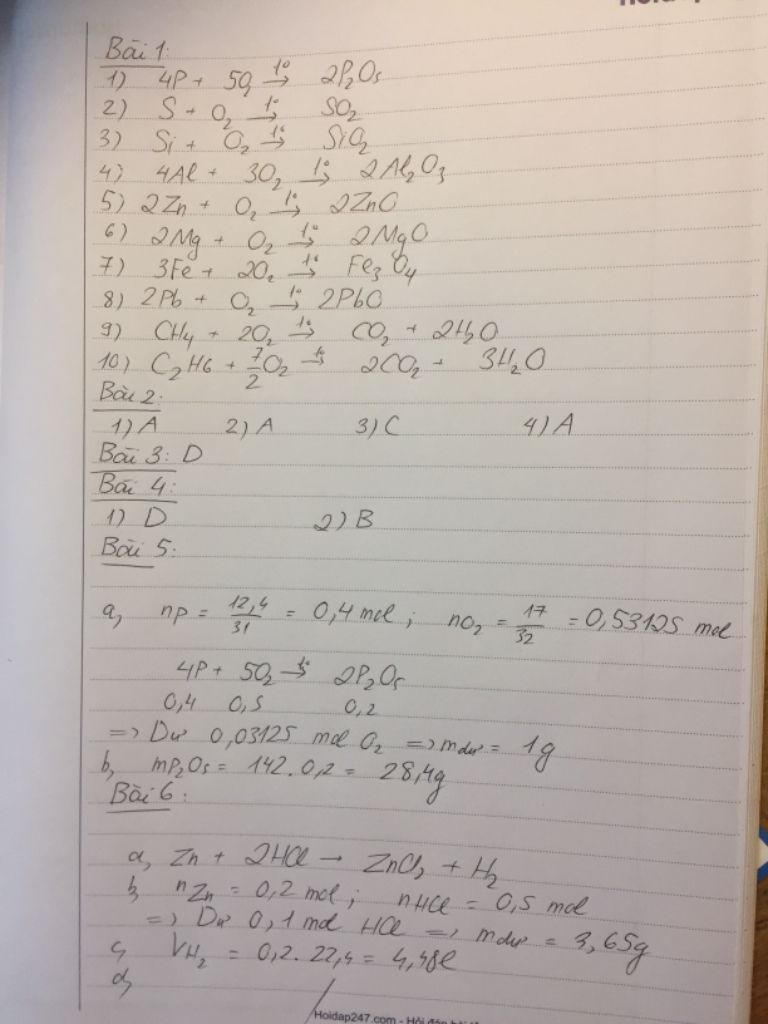 Bài 1:
1) 4P + 5O₂ t°→ 2P₂O₅
2) S + O₂ t°→ SO₂
3) Si + O₂ t°→ SiO₂
4) 4Al + 3O₂ t°→ 2Al₂O₃
5) 2Zn + O₂ t°→ 2ZnO
6) 2Mg + O₂ t°→ 2MgO
7) 3Fe + 2O₂ t°→ Fe₃O₄
8) 2Pb + O₂ t°→ 2PbO
9) CH₄ + 2O₂ t°→ CO₂ + 2H₂O
10) C₂H₆ + 7/2 O₂ t°→ 2CO₂ + 3H₂O
Bài 2:
1) A 2) A 3) C 4) A
Bài 3: D
Bài 4:
1) D 2) B
Bài 5:
a, nP = 12,4/31 = 0,4 mol ; nO₂ = 17/32 = 0,53125 mol
4P + 5O₂ t°→ 2P₂O₅
0,4 0,5 0,2
=> Dư 0,03125 mol O₂ => m dư = 1g
b, mP₂O₅ = 142 . 0,2 = 28,4g
Bài 6:
a, Zn + 2HCl → ZnCl₂ + H₂
b, nZn = 0,2 mol ; nHCl = 0,5 mol
=> Dư 0,1 mol HCl => m dư = 3,65g
c, VH₂ = 0,2 . 22,4 = 4,48l
d,
Hoidap247.com - Hỏi đáp